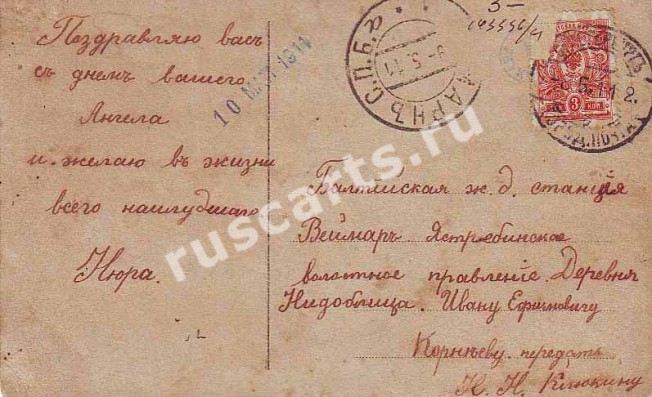 Поздравляю васъ
съ днемъ вашего
Ангела
и желаю въ жизни
всего наилудшаго
Нюра.
10 МАЙ 1911
ЯМБ. С.П.Б.
5 11
3 КОП.
Балтiйская ж. д. станцiя
Веймарнъ Ястребинское
волостное правленiе. Деревня
Нидоблица. Ивану Ефимовичу
Корнѣеву. передать
Н. Н. Клюкину
ruscarts.ru